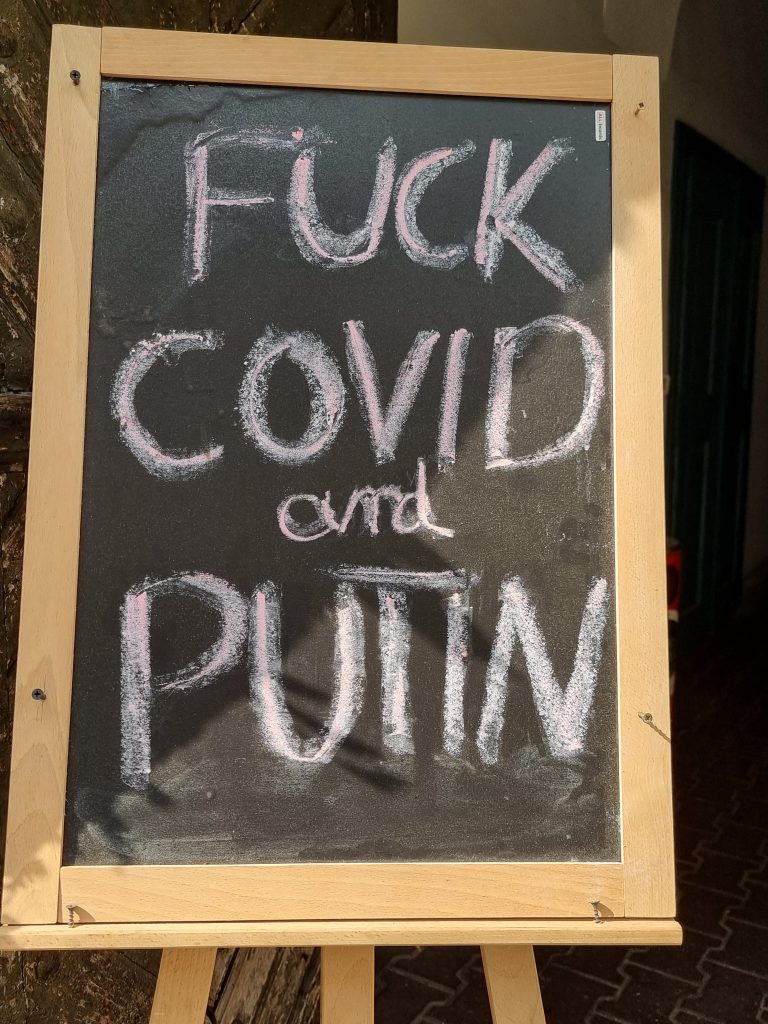 FUCK
COVID
and
PUTIN